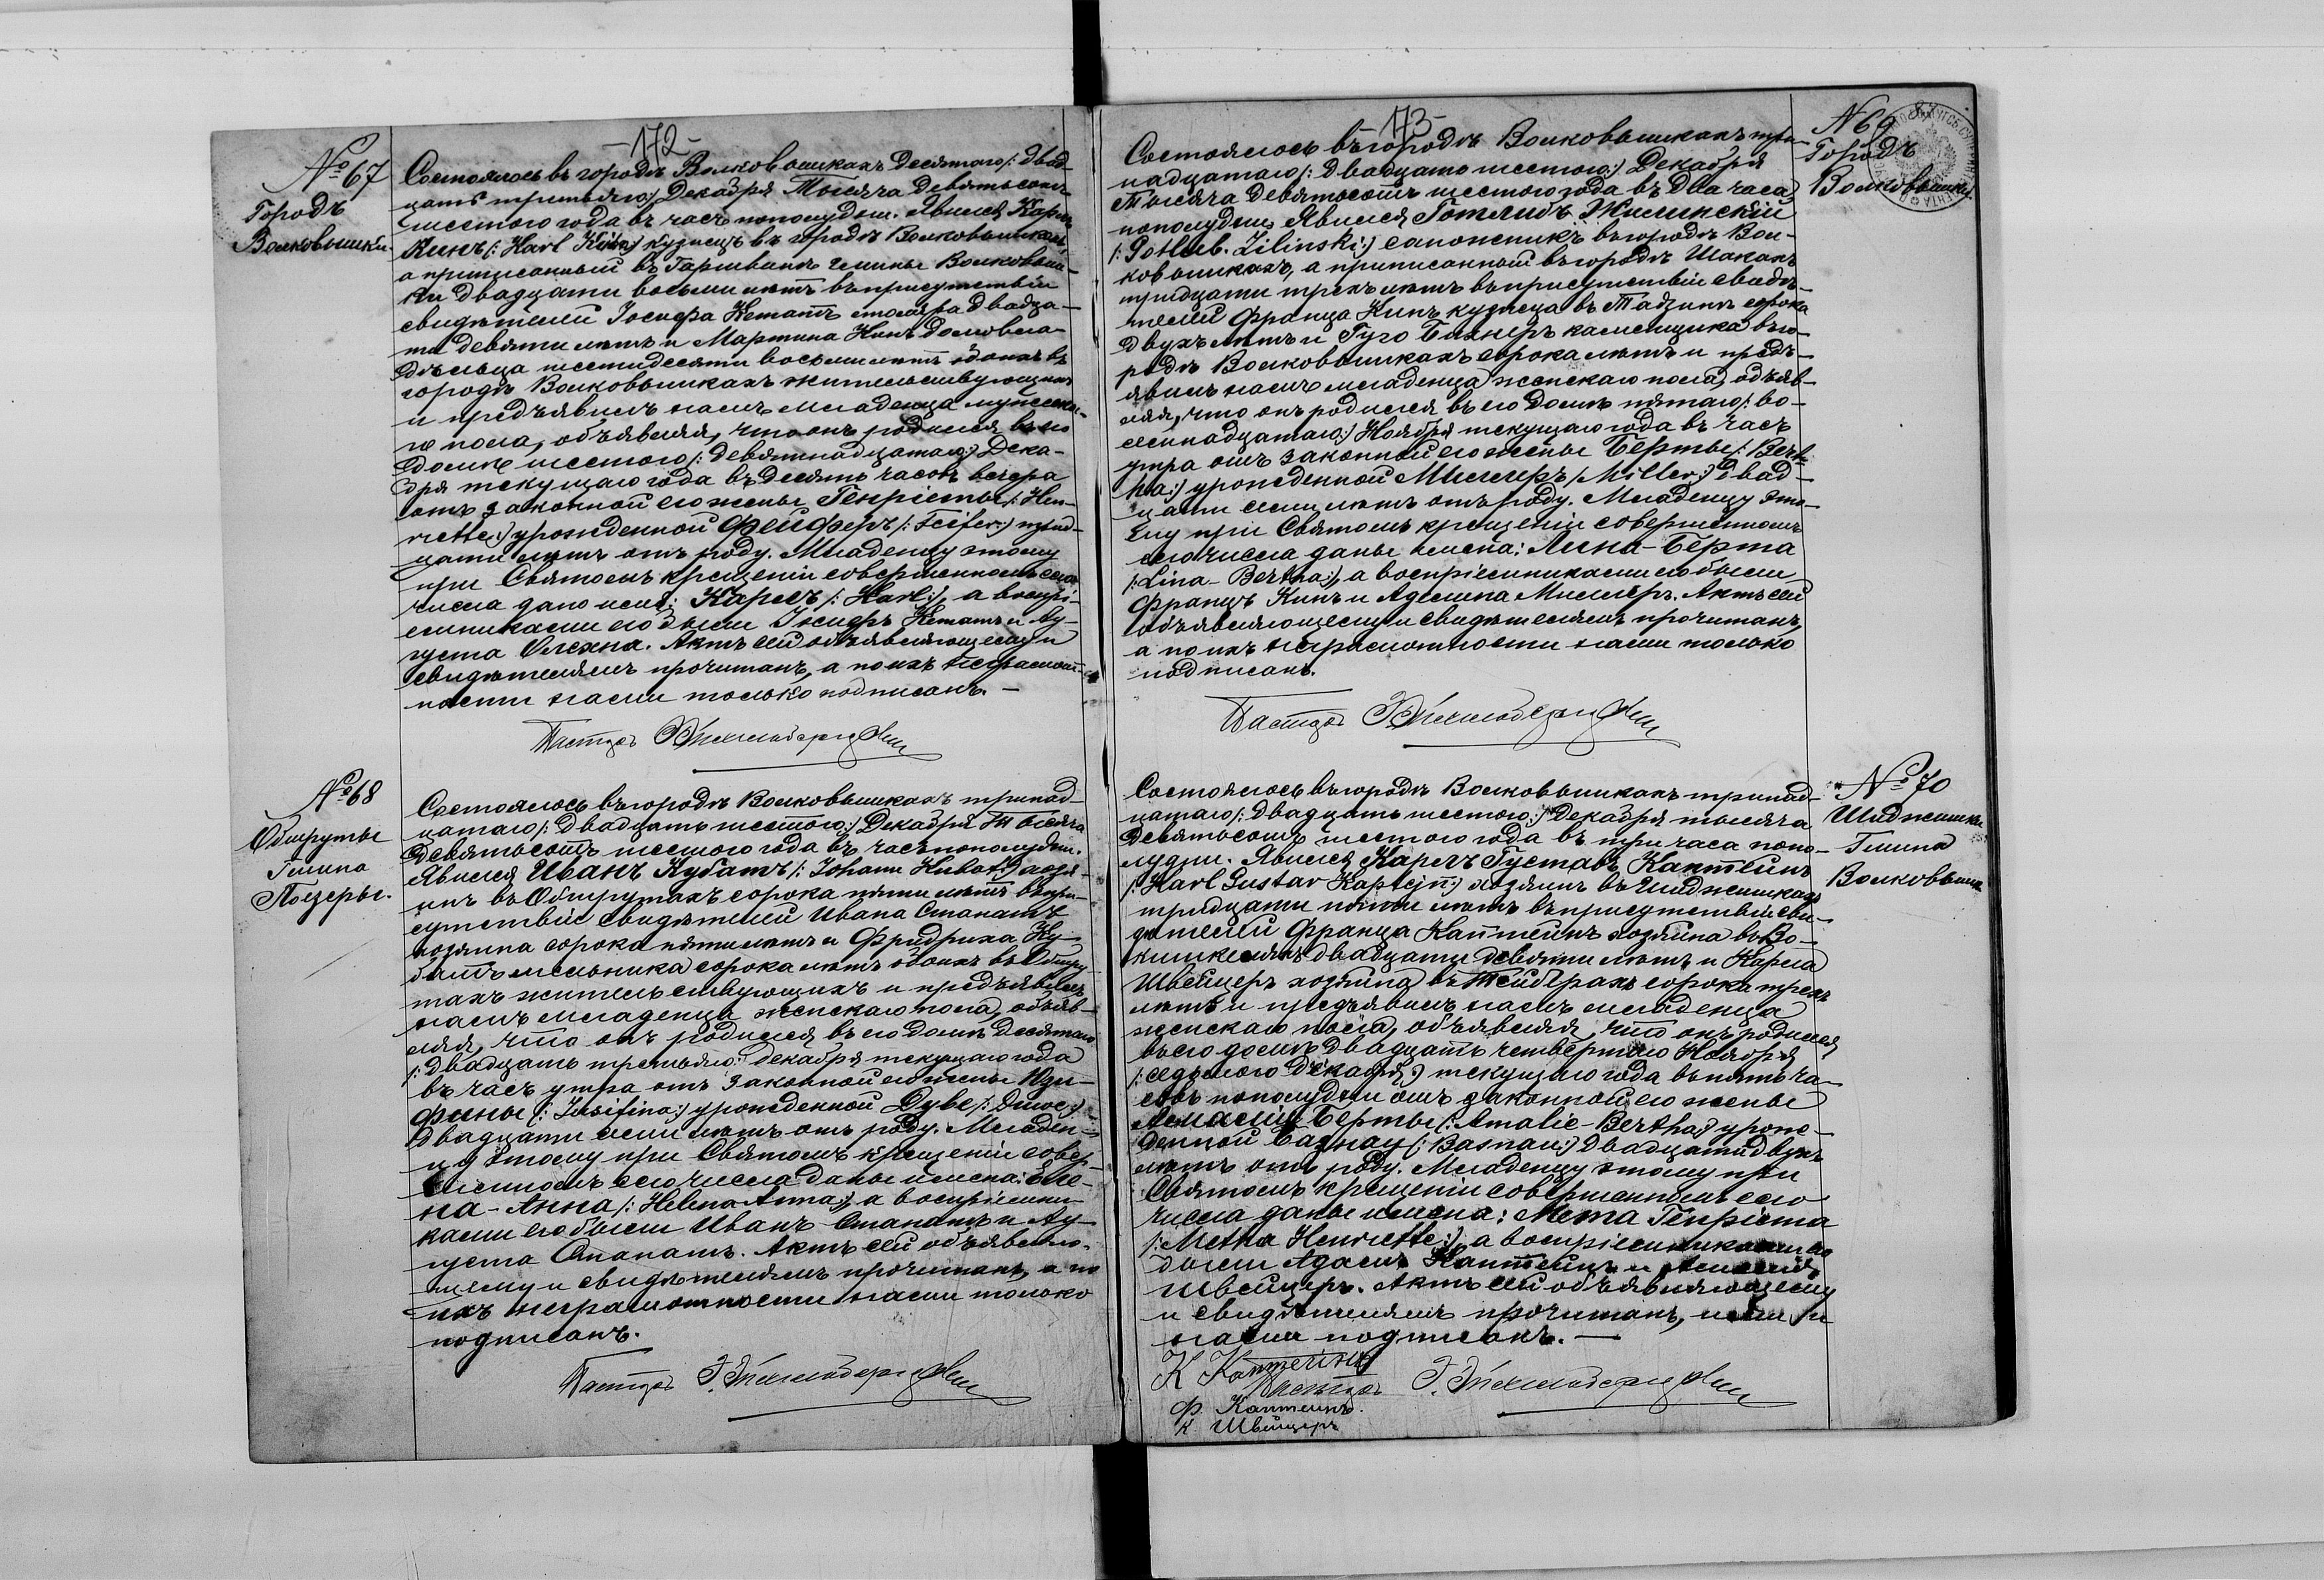 -172-
№ 67
Городъ
Волковышки.
Состоялось въ городѣ Волковышкахъ Десятаго /: двад-
цать третьяго :/ Декабря Тысяча девятьсотъ
шестого года въ часъ пополудни. Явился Карлъ
Кинъ /: Karl Kühn :/ кузнецъ въ городѣ Волковышкахъ,
а приписанный въ гмины Волковыш-
ки двадцати восьми лѣтъ въ присутствіи
свидѣтелей Іосифа Кематъ столяра двадца-
ти девяти лѣтъ и Мартина Кинъ домовла-
дѣльца шестидесяти восьми лѣтъ обоихъ въ
городѣ Волковышкахъ жительствующихъ
и предъявилъ намъ младенца мужеска-
го пола, объявляя, что онъ родился въ его
домѣ шестого /: девятнадцатаго :/ Дека-
бря текущаго года въ десять часовъ вечера
отъ законной его жены Генріетты /: Hen-
riette :/ урожденной Фейферъ /: Feifer :/ трид-
цати лѣтъ отъ роду. Младенцу этому
при Святомъ крещеніи совершенномъ сего
числа дано имя: Карлъ /: Karl :/, а воспрі-
емниками его были Іосифъ Кематъ и Ав-
густа Олехна. Актъ сей объявляющему и
свидѣтелямъ прочитанъ, а по ихъ неграмот-
ности нами только подписанъ. —
Пасторъ
№ 68
Обшруты
Гмина
Поезеры.
Состоялось въ городѣ Волковышкахъ тринад-
цатаго /: двадцать шестого :/ Декабря Тысяча
девятьсотъ шестого года въ часъ пополудни.
Явился Иванъ Кубатъ /: Johann Kubat :/ хозя-
инъ въ Обшрутахъ сорока пяти лѣтъ въ при-
сутствіи свидѣтелей Ивана Станатъ
хозяина сорока пяти лѣтъ и Фридриха Ку-
батъ мельника сорока лѣтъ обоихъ въ Обшру-
тахъ жительствующихъ и предъявилъ
намъ младенца женскаго пола, объяв-
ляя, что онъ родился въ его домѣ десятаго
/: двадцать третьяго :/ декабря текущаго года
въ часъ утра отъ законной его жены Юзе-
фины /: Jusifina :/ урожденной Дуве
двадцати семи лѣтъ отъ роду. Младен-
цу этому при Святомъ крещеніи совер-
шенномъ сего числа даны имена: Еле-
на-Анна /: Helena Anna :/, а воспріемни-
ками его были Иванъ Станатъ и Ав-
густа Станатъ. Актъ сей объявляю-
щему и свидѣтелямъ прочитанъ, а по
ихъ неграмотности нами только
подписанъ.
Пасторъ
-173-
№ 69
Городъ
Волковышки
Состоялось въ городѣ Волковышкахъ три-
надцатаго /: двадцать шестого :/ Декабря
Тысяча девятьсотъ шестого года въ два часа
пополудни, Явился Готлибъ Жилинскій
/: Gottlieb Zilinski :/ сапожникъ въ городѣ Вол-
ковышкахъ, а приписанный въ городѣ Шакахъ
тридцати трехъ лѣтъ въ присутствіи свидѣ-
телей Франца Кинъ кузнеца въ сорока
двухъ лѣтъ и Гуго каменщика въ го-
родѣ Волковышкахъ сорока лѣтъ и предъ-
явилъ намъ младенца женскаго пола, объяв-
ляя, что онъ родился въ его домѣ пятаго /: во-
семнадцатаго :/ Ноября текущаго года въ часъ
утра отъ законной его жены Берты /: Bert-
ha :/ урожденной Миллеръ /: Miller :/ двад-
цати семи лѣтъ отъ роду. Младенцу это-
му при Святомъ крещеніи совершенномъ
сего числа даны имена: Лина-Берта
/: Lina-Bertha :/, а воспріемниками его были
Францъ Кинъ и Аделина Миллеръ. Актъ сей
объявляющему и свидѣтелямъ прочитанъ,
а по ихъ неграмотности нами только
подписанъ.
Пасторъ
№ 70
Гмина
Волковышки
Состоялось въ городѣ Волковышкахъ тринад-
цатаго /: двадцать шестого :/ Декабря тысяча
девятьсотъ шестого года въ три часа попо-
лудни. Явился Карлъ Густавъ Каптейнъ
/: Karl Gustav Kaptejn :/ хозяинъ въ
тридцати пяти лѣтъ въ присутствіи сви-
дѣтелей Франца Каптейнъ хозяина въ Во-
кишкеляхъ двадцати девяти лѣтъ и Карла
Швейцеръ хозяина въ Тейберахъ сорока трехъ
лѣтъ и предъявилъ намъ младенца
женскаго пола, объявляя, что онъ родился
въ его домѣ двадцать четвертаго Ноября
/: седьмого Декабря :/ текущаго года въ пять ча-
совъ пополудни отъ законной его жены
Амаліи-Берты /: Amalie-Bertha :/ урож-
денной Баснау /: Basnau :/ двадцати двухъ
лѣтъ отъ роду. Младенцу этому при
Святомъ крещеніи совершенномъ сего
числа даны имена: Мета Генріета
/: Metha Henriette :/, а воспріемниками его
были Адамъ Каптейнъ и Амалія
Швейцеръ. Актъ сей объявляющему
и свидѣтелямъ прочитанъ, ими и
нами подписанъ. —
К Каптейнъ
Пасторъ
Ф. Каптейнъ.
К Швейцеръ